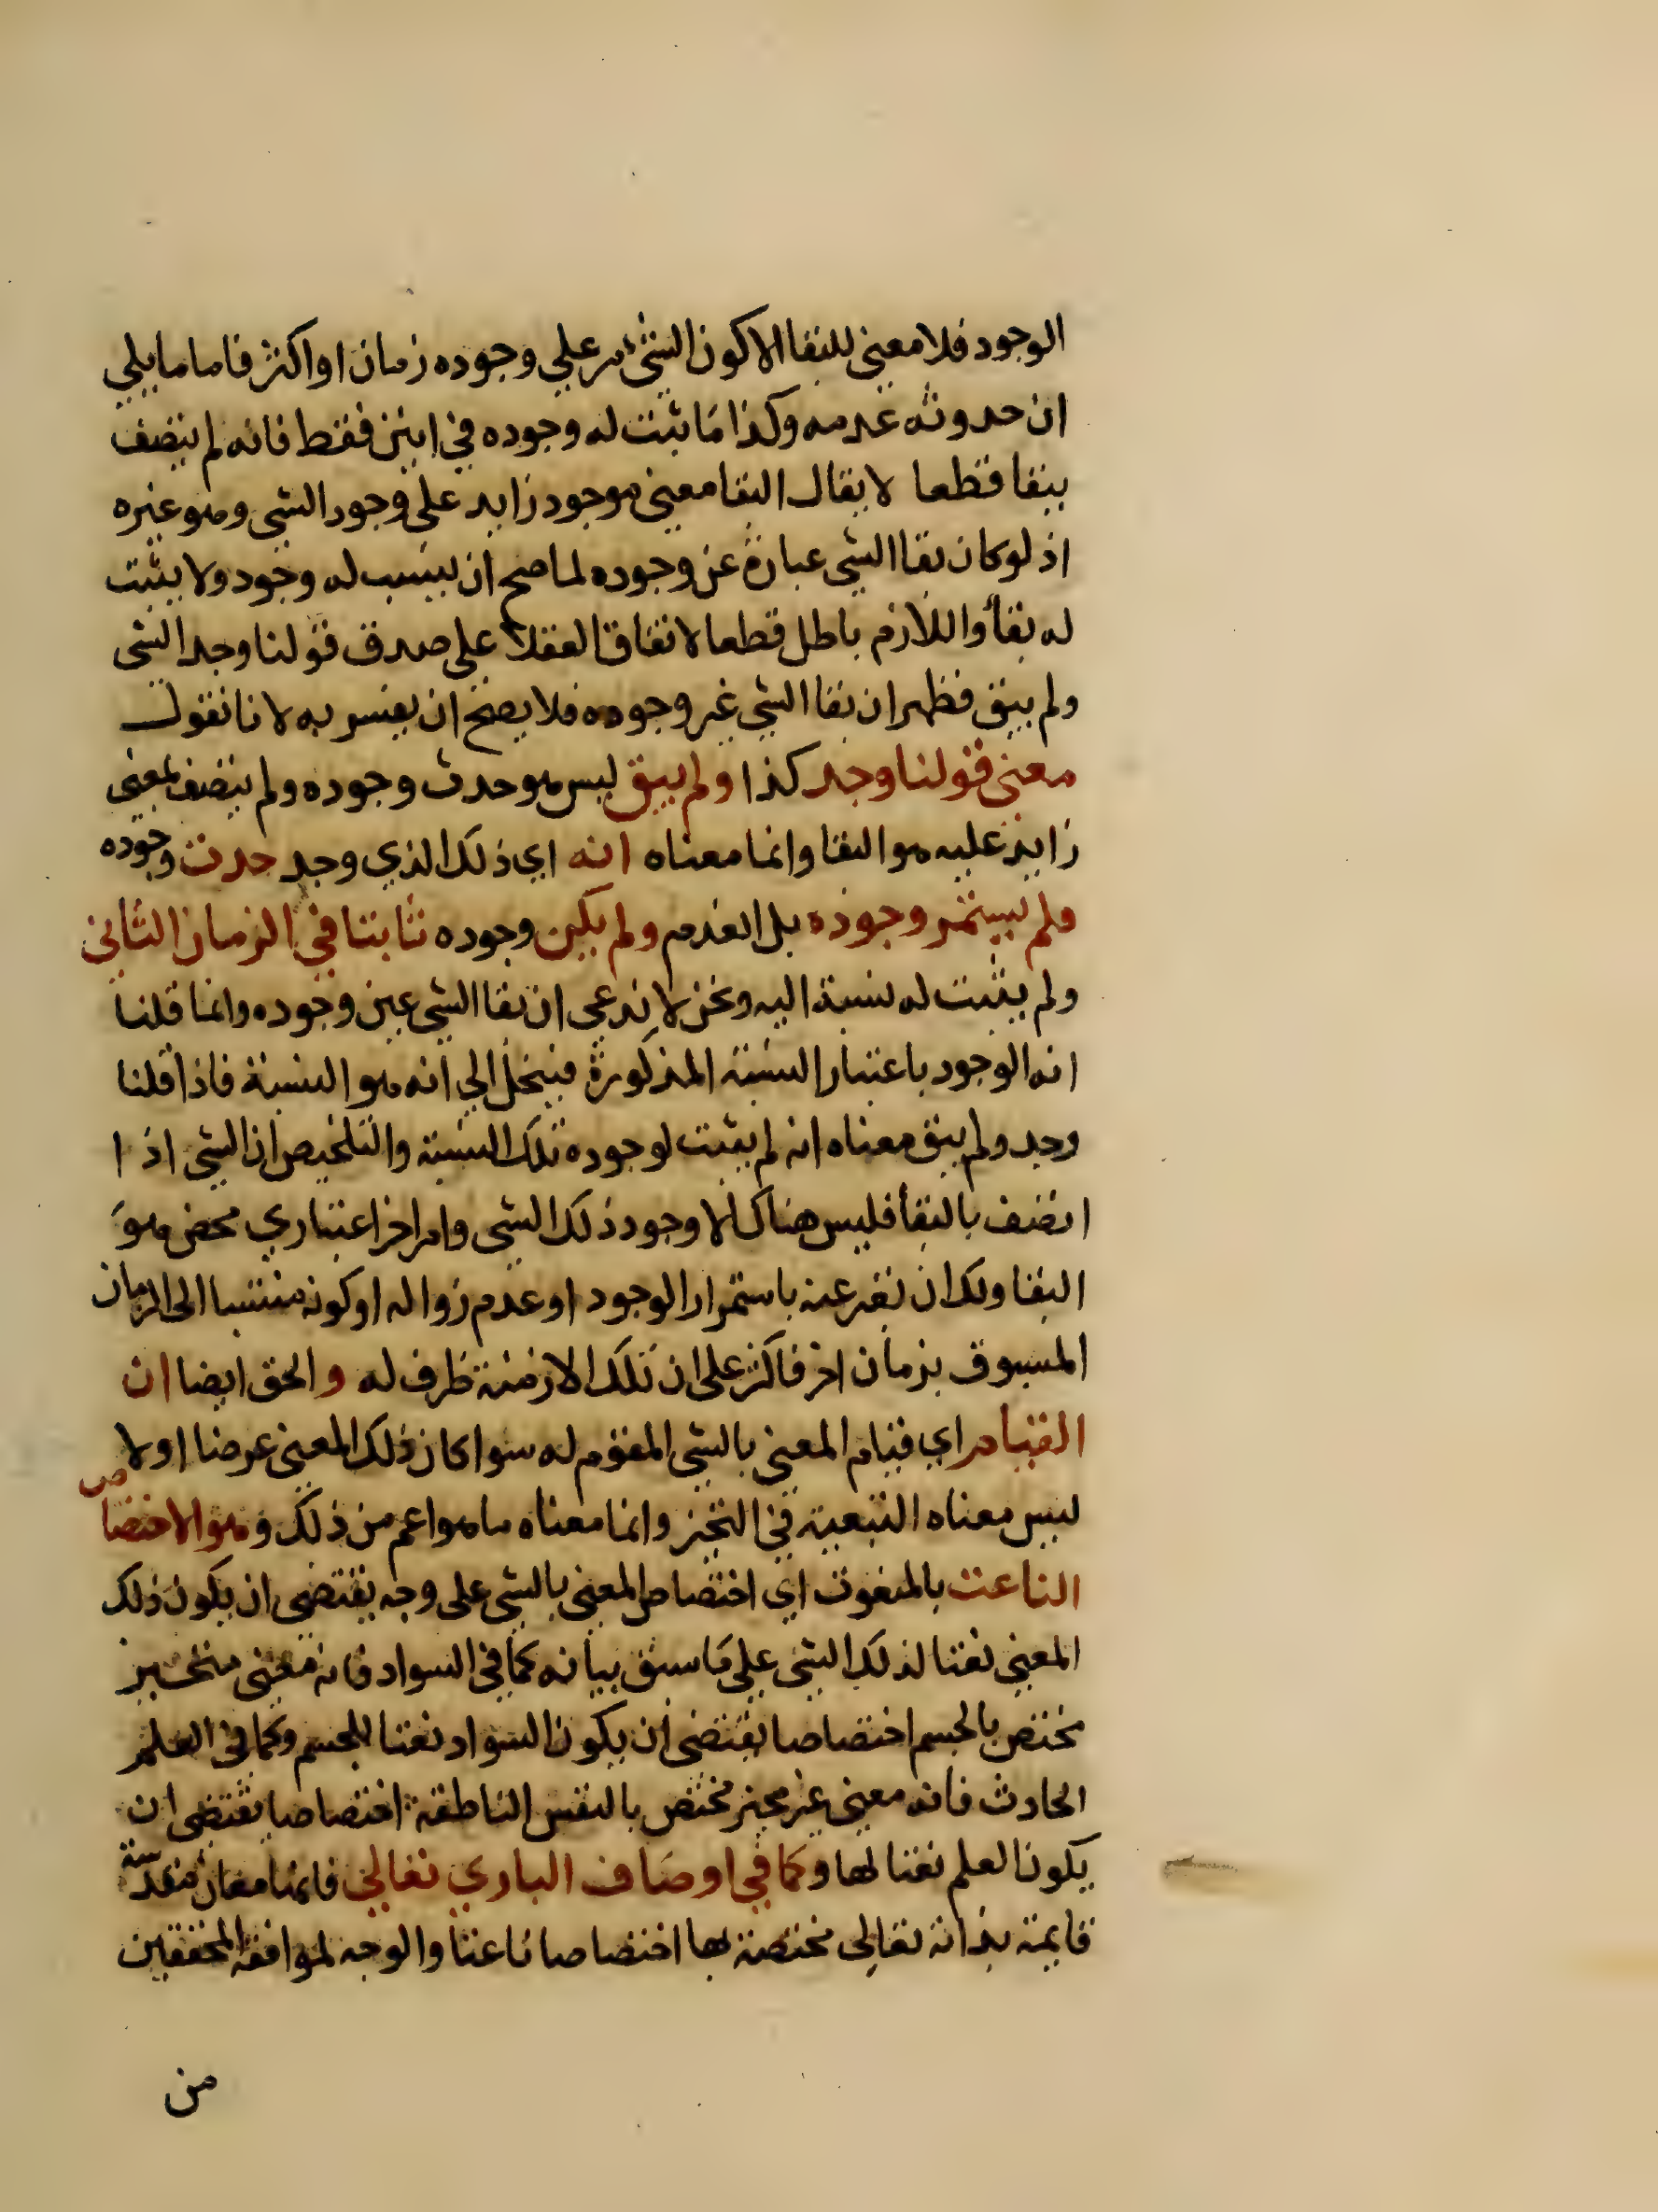 الوجود فلا معنى للبقا الا كون الشئ مر علي وجوده زمان او اكثر فاما ما يلي
ان حدوثه عدمه وكذا ما ثبت له وجوده في انين فقط فانه لم يتصف
ببقا قطعا لا يقال البقا معنى موجود زايد على وجود الشي وهو غيره
اذ لو كان بقا الشي عبارة عن وجوده لما صح ان ينسب له وجود ولا يثبت
له بقأ واللازم باطل قطعا لاتفاق العقلا على صدق قولنا وجد الشي
ولم يبق فظهر ان بقا الشي غير وجوده فلا يصح ان يفسر به لانا نقول
معنى قولنا وجد كذا ولم يبق ليس هو حدث وجوده ولم يتصف بمعنى
زايد عليه هو البقا وانما معناه انه اي ذلك الذي وجد حدث وجوده
ولم يستمر وجوده بل انعدم ولم يكن وجوده ثابتا في الزمان الثاني
ولم يثبت له نسبة اليه ونحن لا ندعي ان بقا الشي عين وجوده وانما قلنا
انه الوجود باعتبار النسبة المذكورة فينحل الي انه هو النسبة فاذا قلنا
وجد ولم يبق معناه انه لم يثبت لوجوده تلك النسبة والتلخيص ان الشي اذا
اتصف بالبقأ فليس هناك الا وجود ذلك الشي وامر اخر اعتباري محض هو
البقا ولك ان تعبر عنه باستمرار الوجود او عدم زواله او كونه منتسبا الى الزمان
المسبوق بزمان اخر فاكثر على ان تلك الازمنة ظرف له والحق ايضا ان
القيام اي قيام المعنى بالشي المقوم له سوا كان ذلك المعنى عرضا او لا
ليس معناه التبعية في التحيز وانما معناه ما هو اعم من ذلك وهو الاختصاص
الناعت بالمنعوت اي اختصاص المعنى بالشي على وجه يقتضي ان يكون ذلك
المعنى نعتا لذلك الشي على ما سبق بيانه كما في السواد فانه معنى متحيز
مختص بالجسم اختصاصا يقتضي ان يكون السواد نعتا للجسم وكما في العلم
الحادث فانه معنى غير متحيز مختص بالنفس الناطقة اختصاصا يقتضي ان
يكون العلم نعتا لها وكما في اوصاف الباري تعالي فانها معان مقدسة
قايمة بذاته تعالى مختصة بها اختصاصا ناعتا والوجه لموافقة المحققين
من